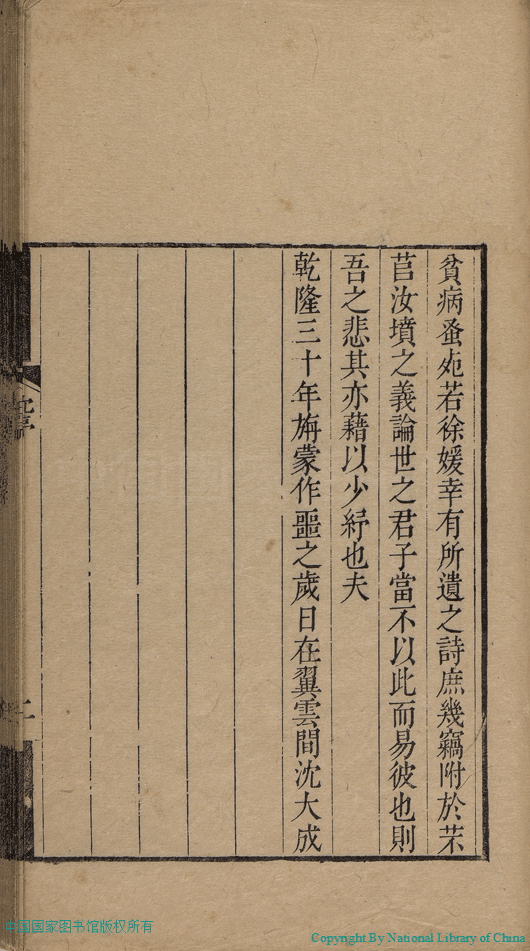 貧病蚤死若徐媛幸有所遺之詩庶幾竊附於芣
苢汝墳之義論世之君子當不以此而易彼也則
吾之悲其亦藉以少紓也夫
乾隆三十年旃蒙作噩之歲日在翼雲間沈大成
二
中国国家图书馆版权所有
Copyright By National Library of China